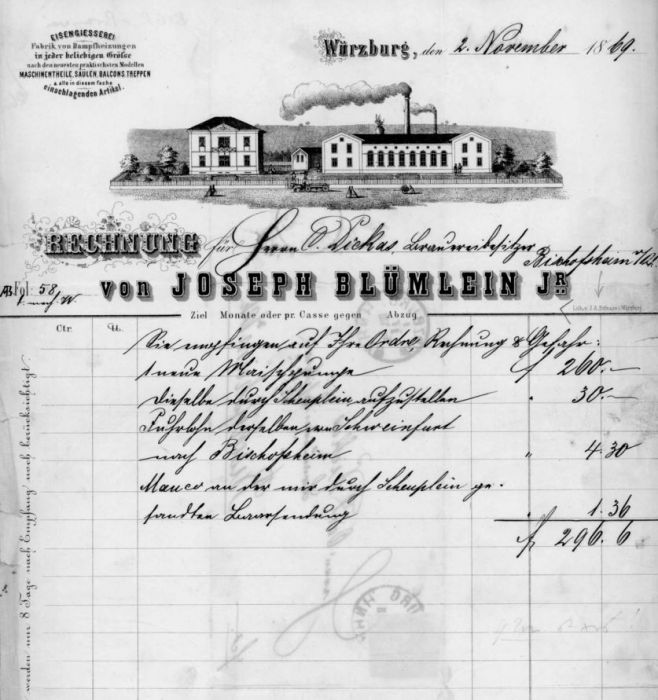 EISENGIESSEREI
Fabrik von Dampfheizungen
in jeder beliebigen Größe
nach den neuesten praktischsten Modellen
MASCHINENTHEILE, SÄULEN, BALCONS, TREPPEN
u. alle in diesem Fache
einschlagenden Artikel.
Würzburg, den 2. November 1869.
RECHNUNG für Herrn C. Dickas, Brauereibesitzer
Bischofsheim
Fol. 58
von JOSEPH BLÜMLEIN JR
Ziel Monate oder pr. Casse gegen Abzug
Ctr. ℔.
Sie empfingen auf Ihre Ordre, Rechnung & Gefahr:
1 neue Maischpumpe f 260.—
Dieselbe durch Schenplein aufzustellen " 30.—
Fuhrlohn derselben von Schweinfurt
nach Bischofsheim " 4.30
Manco an der mir durch Schenplein ge-
sandten Baarsendung " 1.36
f 296.6
werden nur 8 Tage nach Empfang noch berücksichtigt.